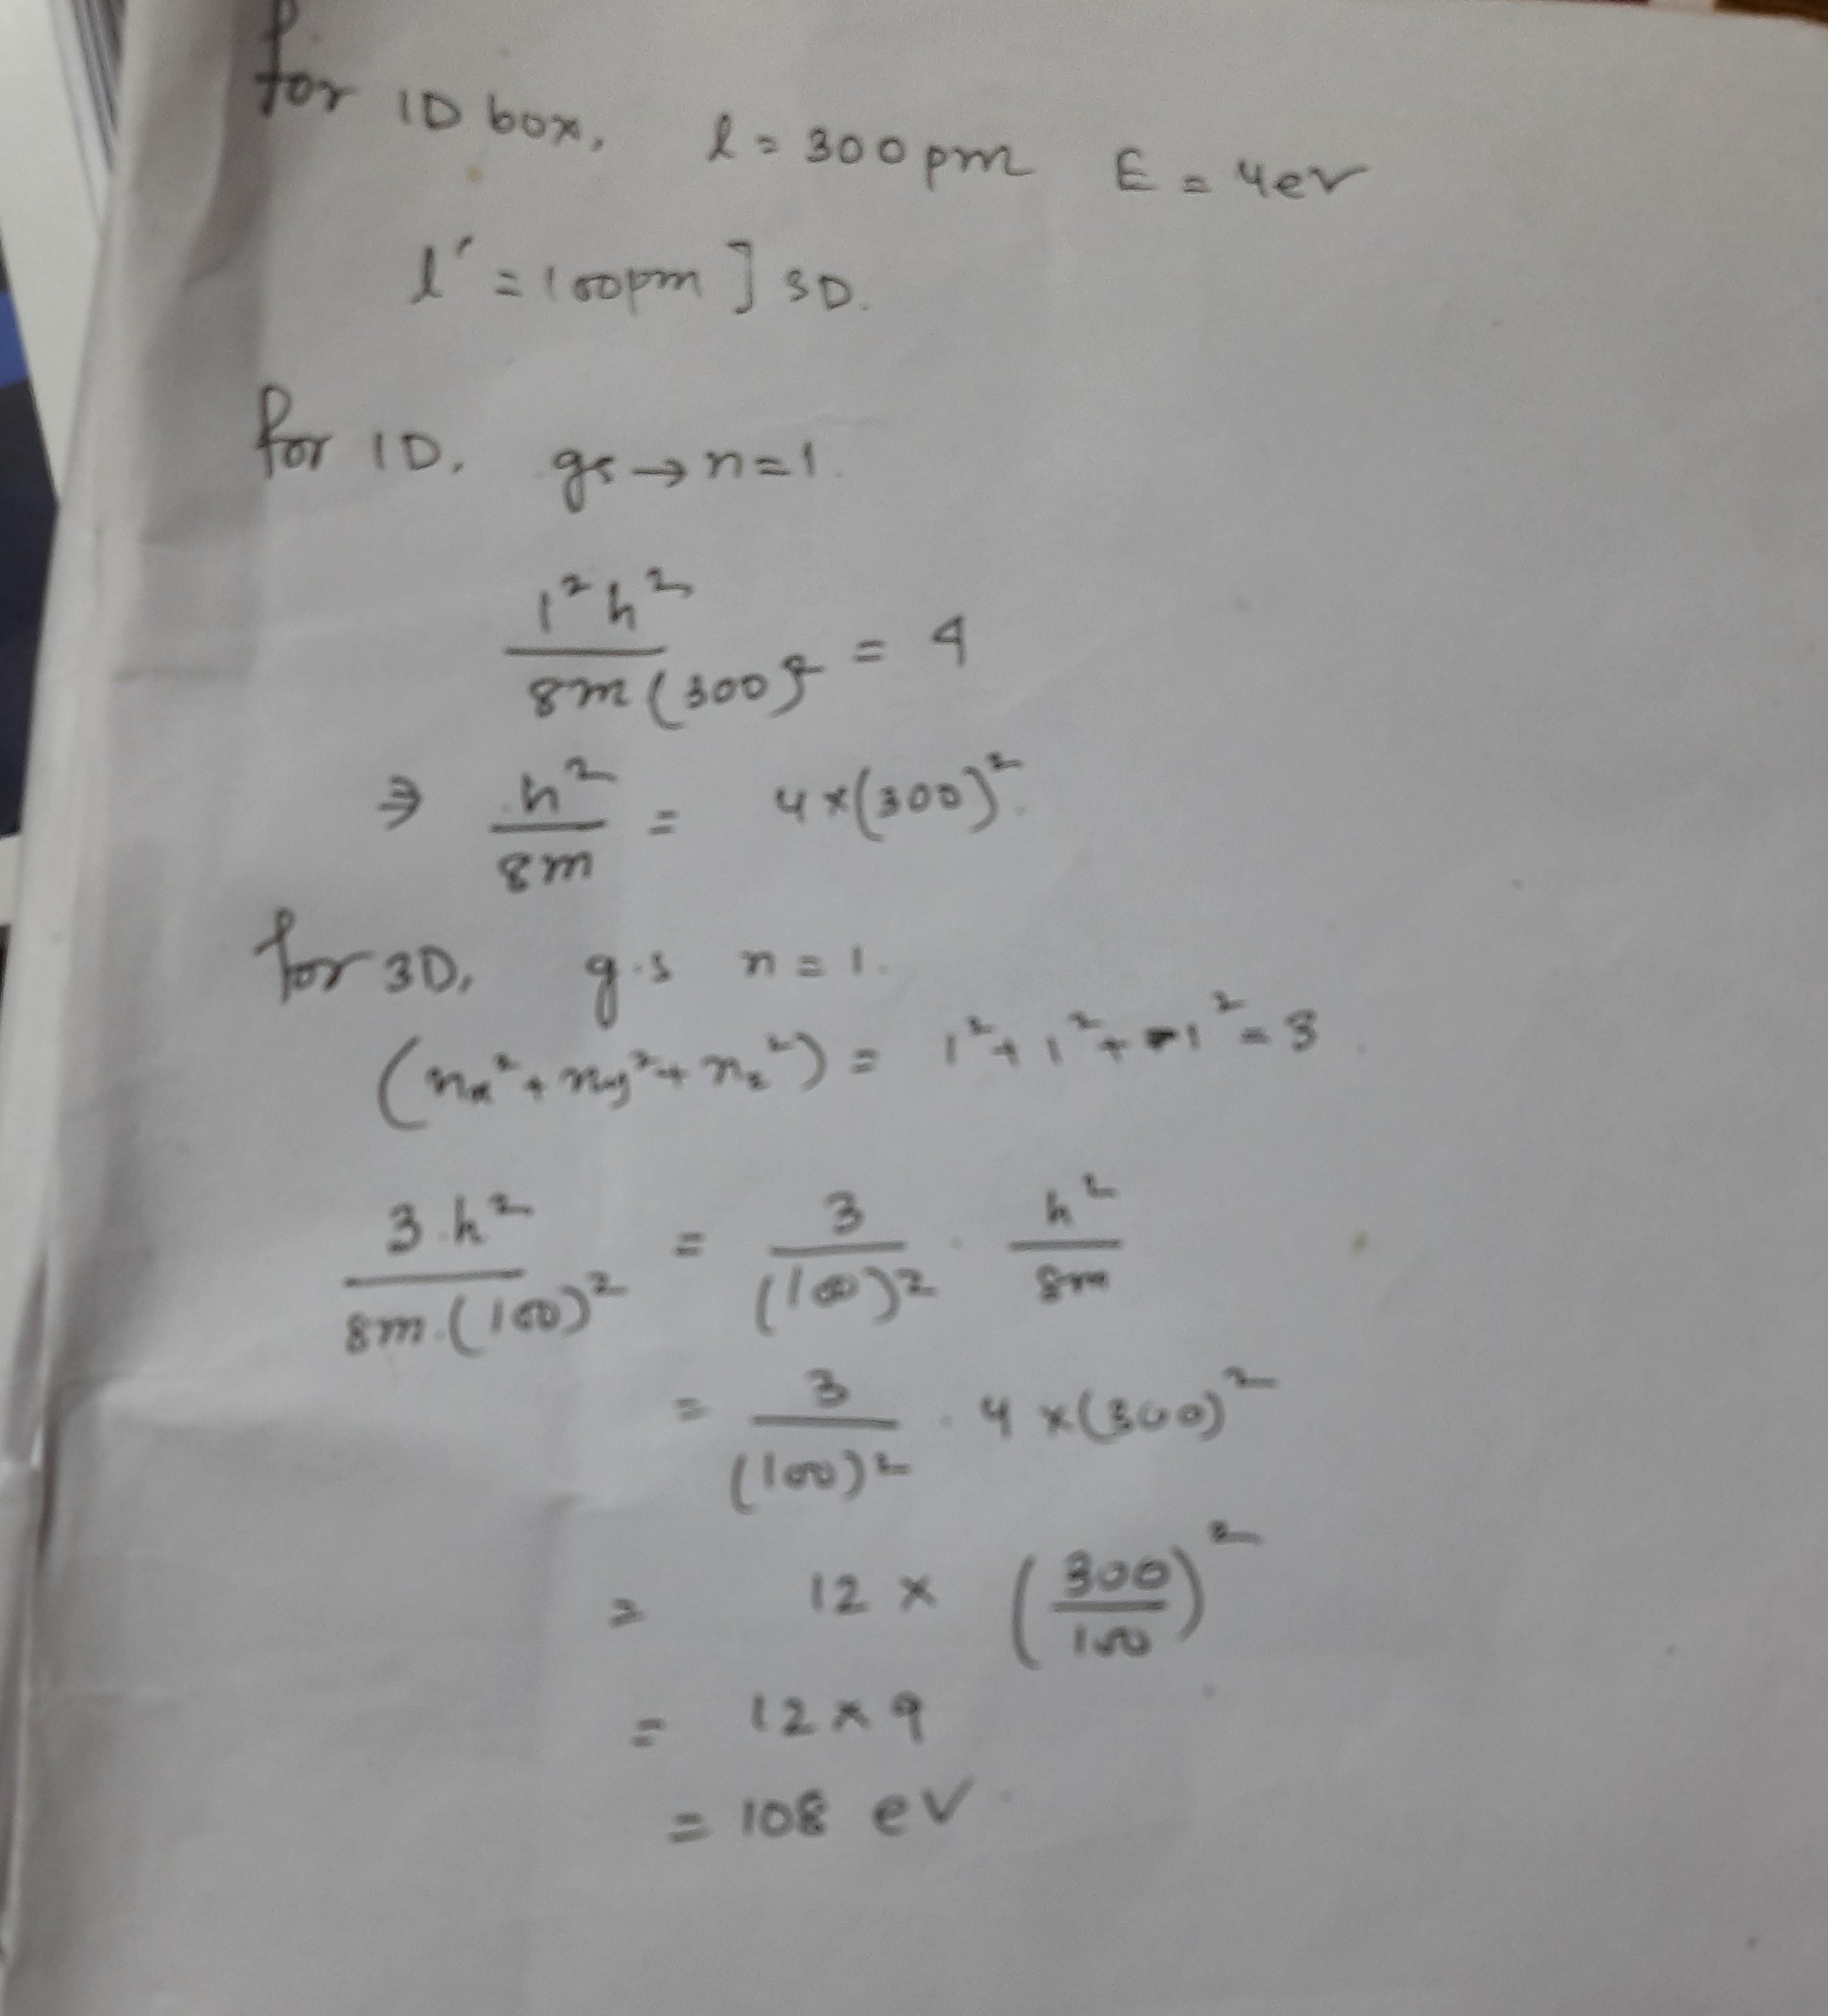 for 1D box, l = 300 pm E = 4ev
l' = 100pm ] 3D.
for 1D, gs → n=1.
1²h² / 8m(300)² = 4
⇒ h² / 8m = 4×(300)².
for 3D, g.s n = 1.
(nx² + ny² + nz²) = 1² + 1² + 1² = 3.
3.h² / 8m.(100)² = 3 / (100)² . h² / 8m
= 3 / (100)² . 4 × (300)²
= 12 × (300 / 100)²
= 12 × 9
= 108 eV.